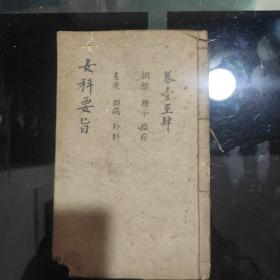 卷壹至肆
調經 種子 胎前
產後 雜病 外科
女科要旨